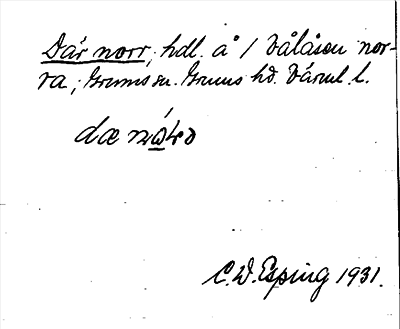 Där norr, hdl. å 1 Vålåsen nor-
ra, Grums sn. Grums hd. Värml. l.
dæ
C.W. Esping 1931.